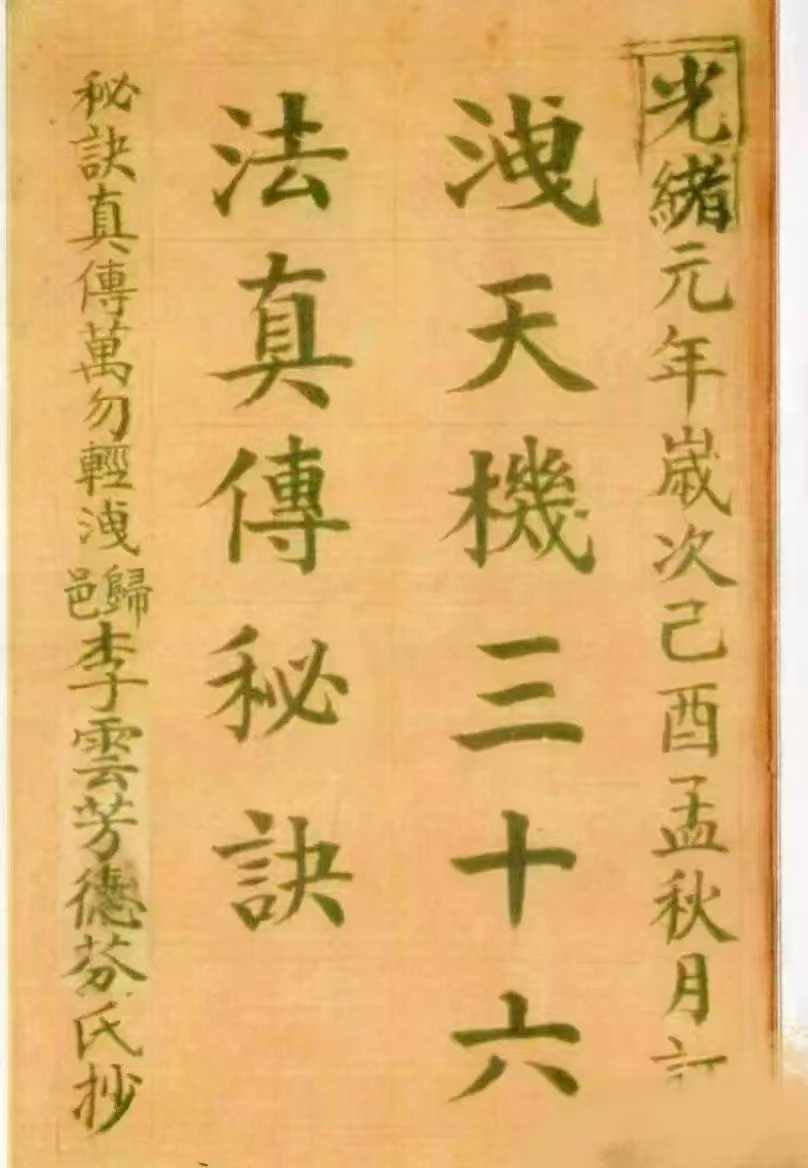 光緒元年歲次己酉孟秋月訂
洩天機三十六
法真傳秘訣
秘訣真傳萬勿輕洩歸邑李雲芳德芬氏抄